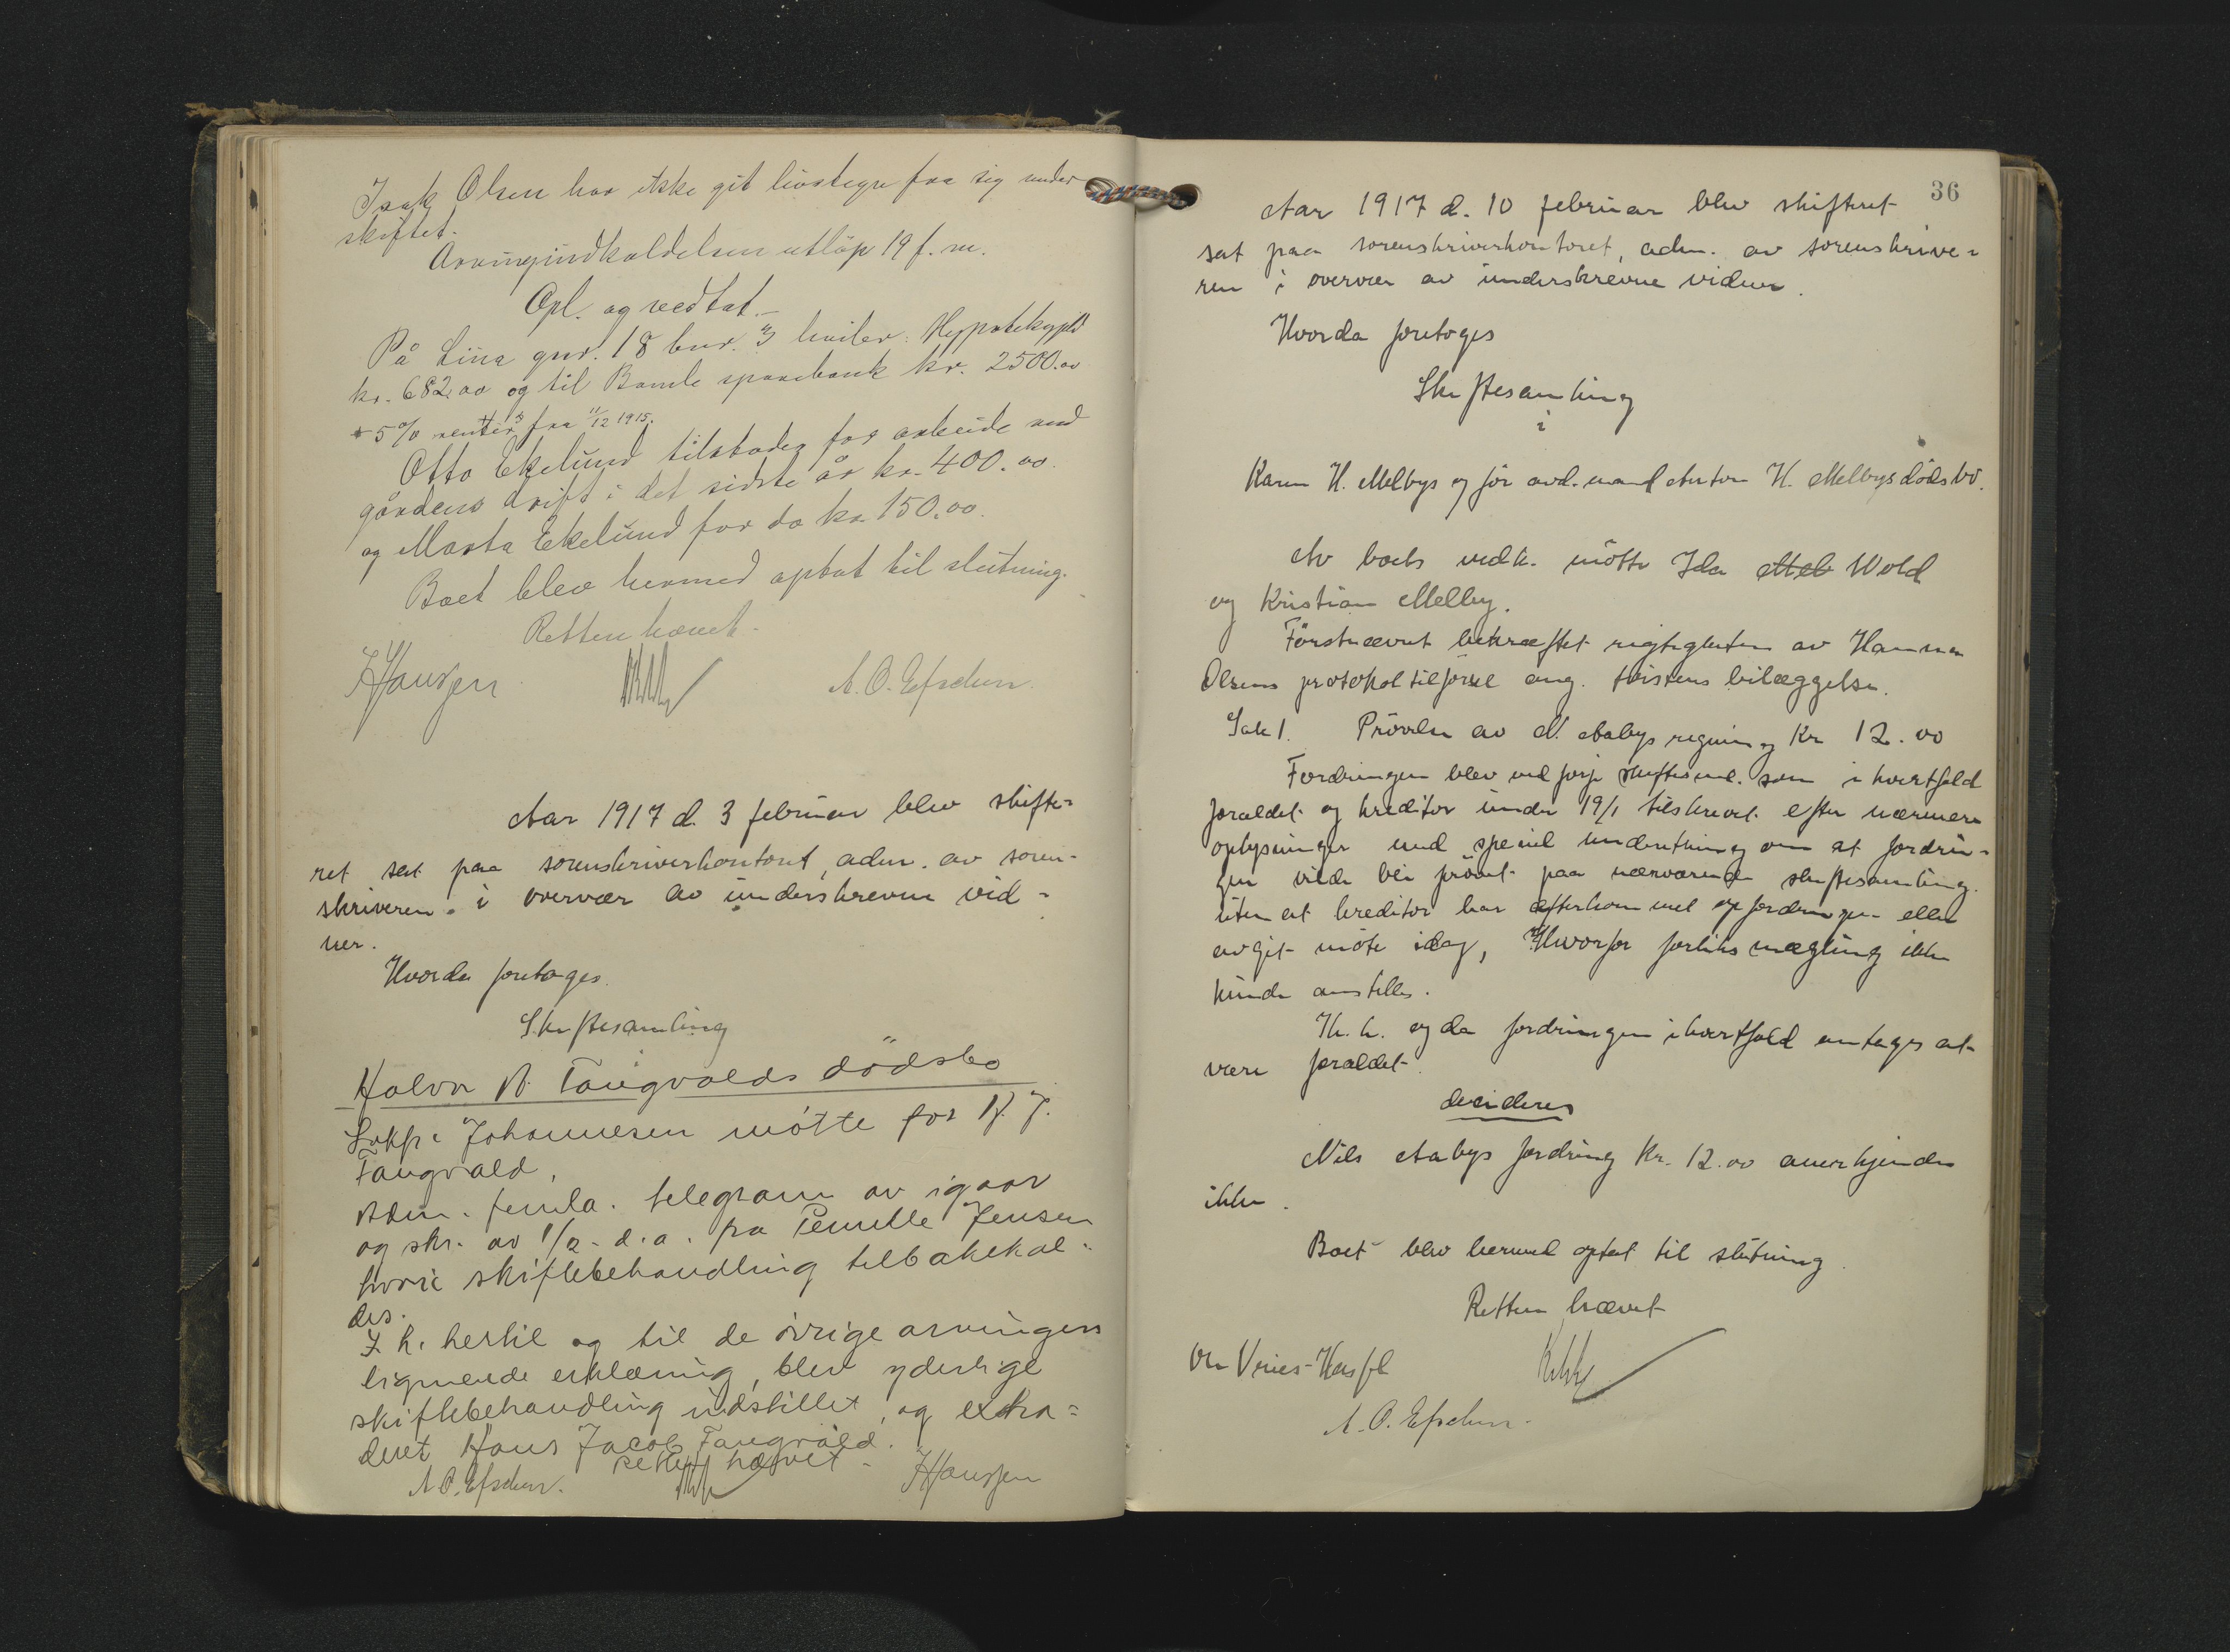 Isak Olsen har ikke git livstegn fra sig under
skiftet.
Arvingindkaldelsen utløp 19 f. m.
Opl. og vedtat.-
På Lina gnr. 18 bnr. 3 hviler: Hypotekgjæld
kr. 682.00 og til Bamle sparebank kr. 2500.00
+ 5 % renter fra 11/12 1915.
Otto Ekelund tilstodes for arbeide med
gårdens drift i det sidste år kr. 400.00.
og Marta Ekelund for do kr. 150.00.
Boet blev hermed optat til slutning.
Retten hævet.
J Hansen A. O. Efschen.
Aar 1917 d. 3 februar blev skifte=
ret sat paa sorenskriverkontoret, adm. av soren-
skriveren i overvær av underskrevne vid=
ner.
Hvorda foretoges.
Skiftesamling
i
Halvor A. Tangvalds dödsbo
Sakf. Johannesen mötte for H. J.
Tangvald.
Adm. fremla. telegram av igaar
og skr. av 1/2 - d. a. fra Pernille Jensen
hvori skiftebehandling tilbakekal=
des.
I h. hertil og til de övrige arvingers
lignende erklæring, blev yderlige
skiftebehandling indstillet, og extra=
deret Hans Jacob Tangvald.
Retten hævet-
A O. Efschen. J Hansen
36
Aar 1917 d. 10 februar blev skifteret
sat paa sorenskriverkontoret, adm. av sorenskrive=
ren i overvær av underskrevne vidner.
Hvorda foretoges
Skiftesamling
i
Karen H. Melbys og før avd. mand Anton H. Melbys dödsbo.
Av boets vedk. mötte Ida Melb Wold
og Kristian Melby.
Förstnævnt bekræftet rigtigheten av Hanna
Olsens protokoltilførsel ang. tvistens bilæggelse.
Sak 1. Prövelse av N. Aabys regning Kr 12.00
Fordringen blev ved forr. skiftesml. som i hvertfald
foraldet og kreditor under 19/1 tilskrevet efter nærmere
oplysninger med speciel underretning om at fordrin=
gen vilde bli prövet paa nærværende skiftesamling.
uten at kreditor har efterkommet opfordringen eller
avgit möte idag, Hvorfor forliksmægling ikke
kunde anstilles.
Th. h. og da fordringen ihvertfald antages at
være foraldet.
decideres
Nils Aabys fordring Kr. 12.00 anerkjendes
ikke.
Boet blev hermed optat til slutning.
Retten hævet
A. O. Efschen.